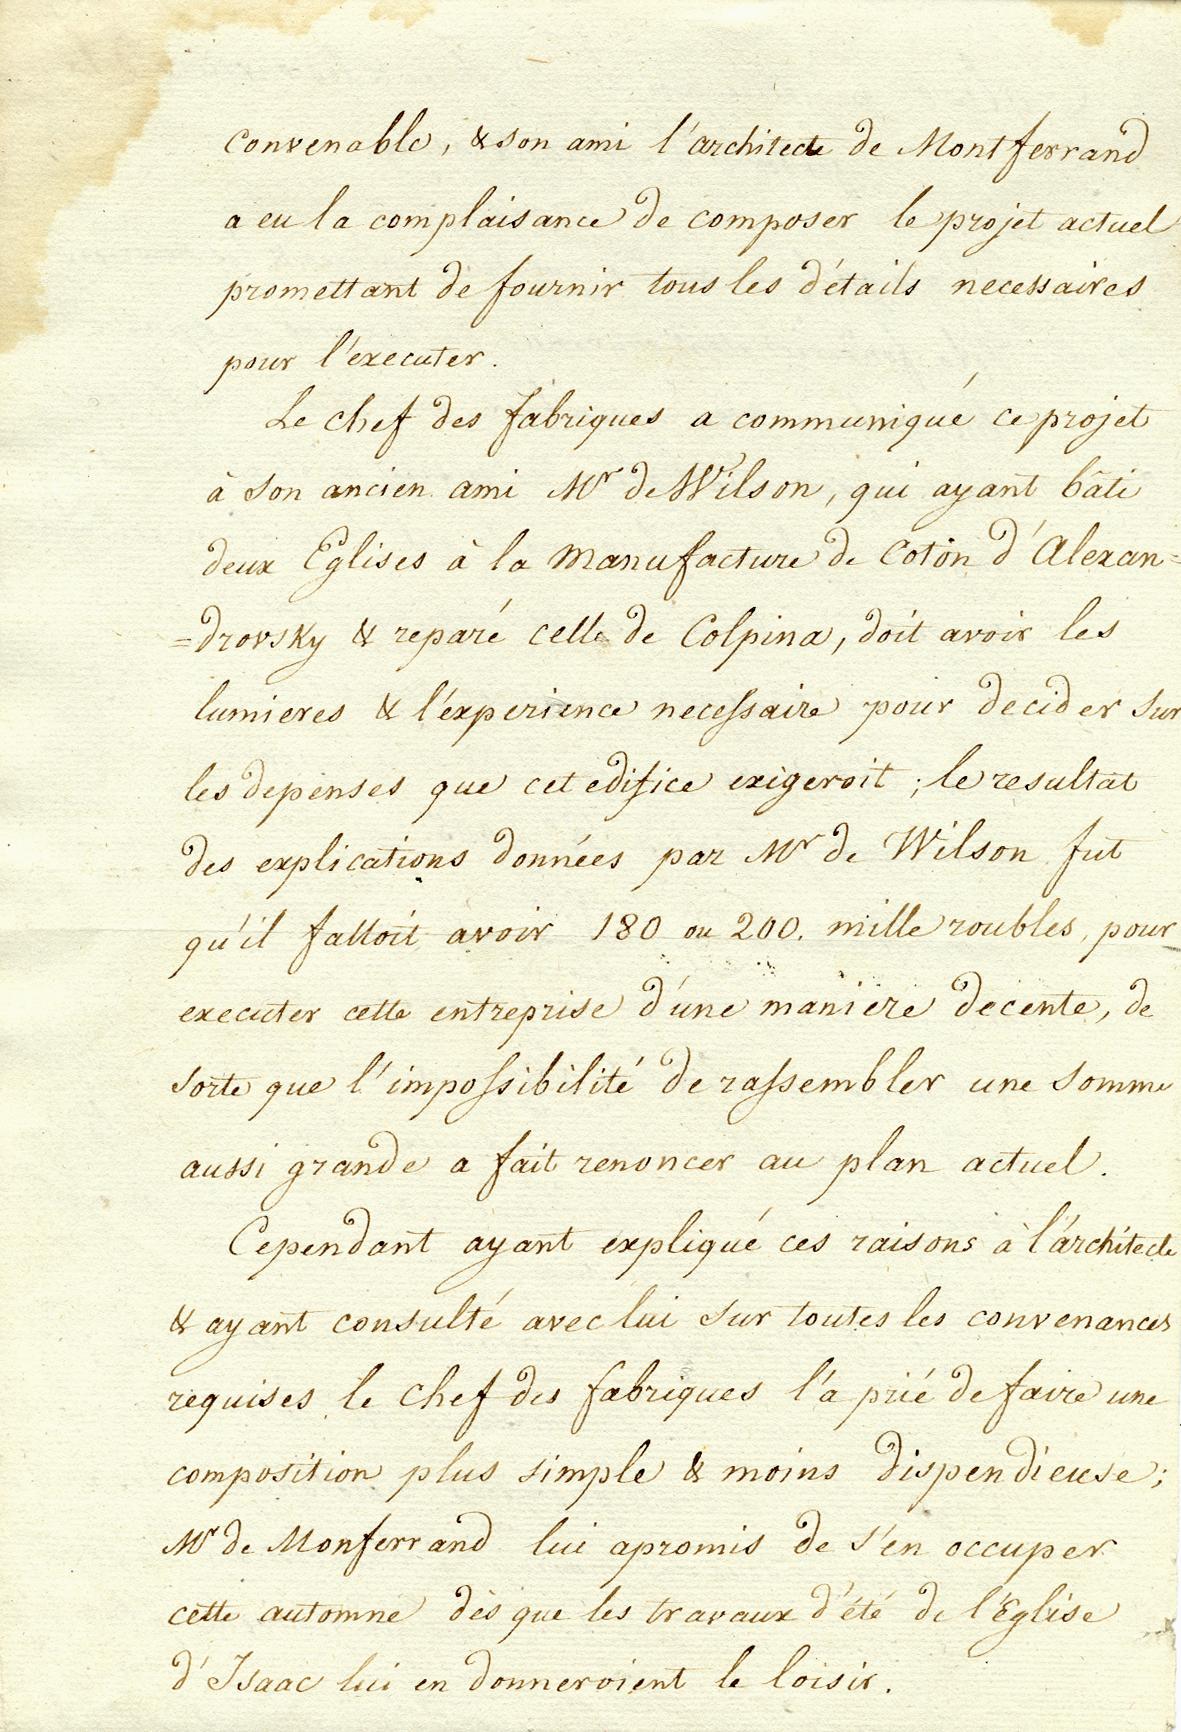 convenable, & son ami l'architecte de Montferrand
a eu la complaisance de composer le projet actuel
promettant de fournir tous les détails necessaires
pour l'executer.
Le chef des fabriques a communiqué ce projet
à son ancien ami Mr de Wilson, qui ayant bâti
deux Eglises à la Manufacture de Coton d'Alexan=
=drovsky & reparé celle de Colpina, doit avoir les
lumieres & l'experience necessaire pour decider sur
les depenses que cet edifice exigeroit; le resultat
des explications données par Mr de Wilson fut
qu'il falloit avoir 180 ou 200. mille roubles, pour
executer cette entreprise d'une maniere decente, de
sorte que l'impossibilité de rassembler une somme
aussi grande a fait renoncer au plan actuel.
Cependant ayant expliqué ces raisons à l'architecte
& ayant consulté avec lui sur toutes les convenances
requises le chef des fabriques l'a prié de faire une
composition plus simple & moins dispendieuse;
Mr de Monferrand lui a promis de s'en occuper
cette automne dès que les travaux d'été de l'Eglise
d'Isaac lui en donneroient le loisir.